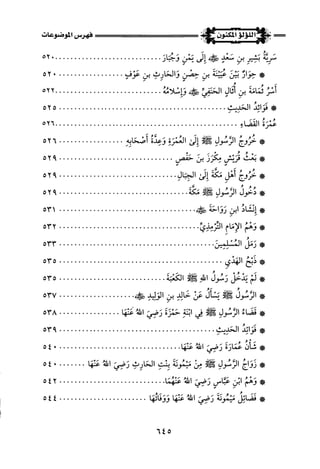 اللؤلؤ المكنون
فهرس الموضوعات
سَرِيَّةُ بَشِيرِ بنِ سَعْدٍ ﷺ إِلَى يَمْنٍ وَجُبَارَ ٥٢٠
* حِوَارٌ بَيْنَ عُيَيْنَةَ بنِ حِصْنٍ وَالحَارِثِ بنِ عَوْفٍ ٥٢٠
أَسْرُ ثُمَامَةَ بنِ أُثَالٍ الحَنَفِيِّ ﷺ وَإِسْلَامُهُ ٥٢٢
* فَوَائِدُ الحَدِيثِ ٥٢٥
عُمْرَةُ القَضَاءِ ٥٢٦
* خُرُوجُ الرَّسُولِ ﷺ إِلَى العُمْرَةِ وَعِدَّةُ أَصْحَابِهِ ٥٢٦
* بَعْثُ قُرَيْشٍ مِكْرَزَ بنَ حَفْصٍ ٥٢٩
* خُرُوجُ أَهْلِ مَكَّةَ إِلَى الجِبَالِ ٥٢٩
* دُخُولُ الرَّسُولِ ﷺ مَكَّةَ ٥٢٩
* إِنْشَادُ ابنِ رَوَاحَةَ ٥٣١
* وَهْمُ الإِمَامِ التِّرْمِذِيِّ ٥٣٢
* رَمَلُ المُسْلِمِينَ ٥٣٣
* ذَبْحُ الهَدْيِ ٥٣٥
* لَمْ يَدْخُلْ رَسُولُ اللهِ ﷺ الكَعْبَةَ ٥٣٥
* الرَّسُولُ ﷺ يَسْأَلُ عَنْ خَالِدِ بنِ الوَلِيدِ ٥٣٧
* قَضَاءُ الرَّسُولِ ﷺ فِي ابْنَةِ حَمْزَةَ رَضِيَ اللهُ عَنْهَا ٥٣٨
* فَوَائِدُ الحَدِيثِ ٥٣٩
* شَأْنُ عُمَارَةَ رَضِيَ اللهُ عَنْهَا ٥٤٠
* زَوَاجُ الرَّسُولِ ﷺ مِنْ مَيْمُونَةَ بِنْتِ الحَارِثِ رَضِيَ اللهُ عَنْهَا ٥٤٠
* وَهْمُ ابْنِ عَبَّاسٍ رَضِيَ اللهُ عَنْهُمَا ٥٤٢
* فَضَائِلُ مَيْمُونَةَ رَضِيَ اللهُ عَنْهَا وَوَفَاتُهَا ٥٤٤
٦٤٥